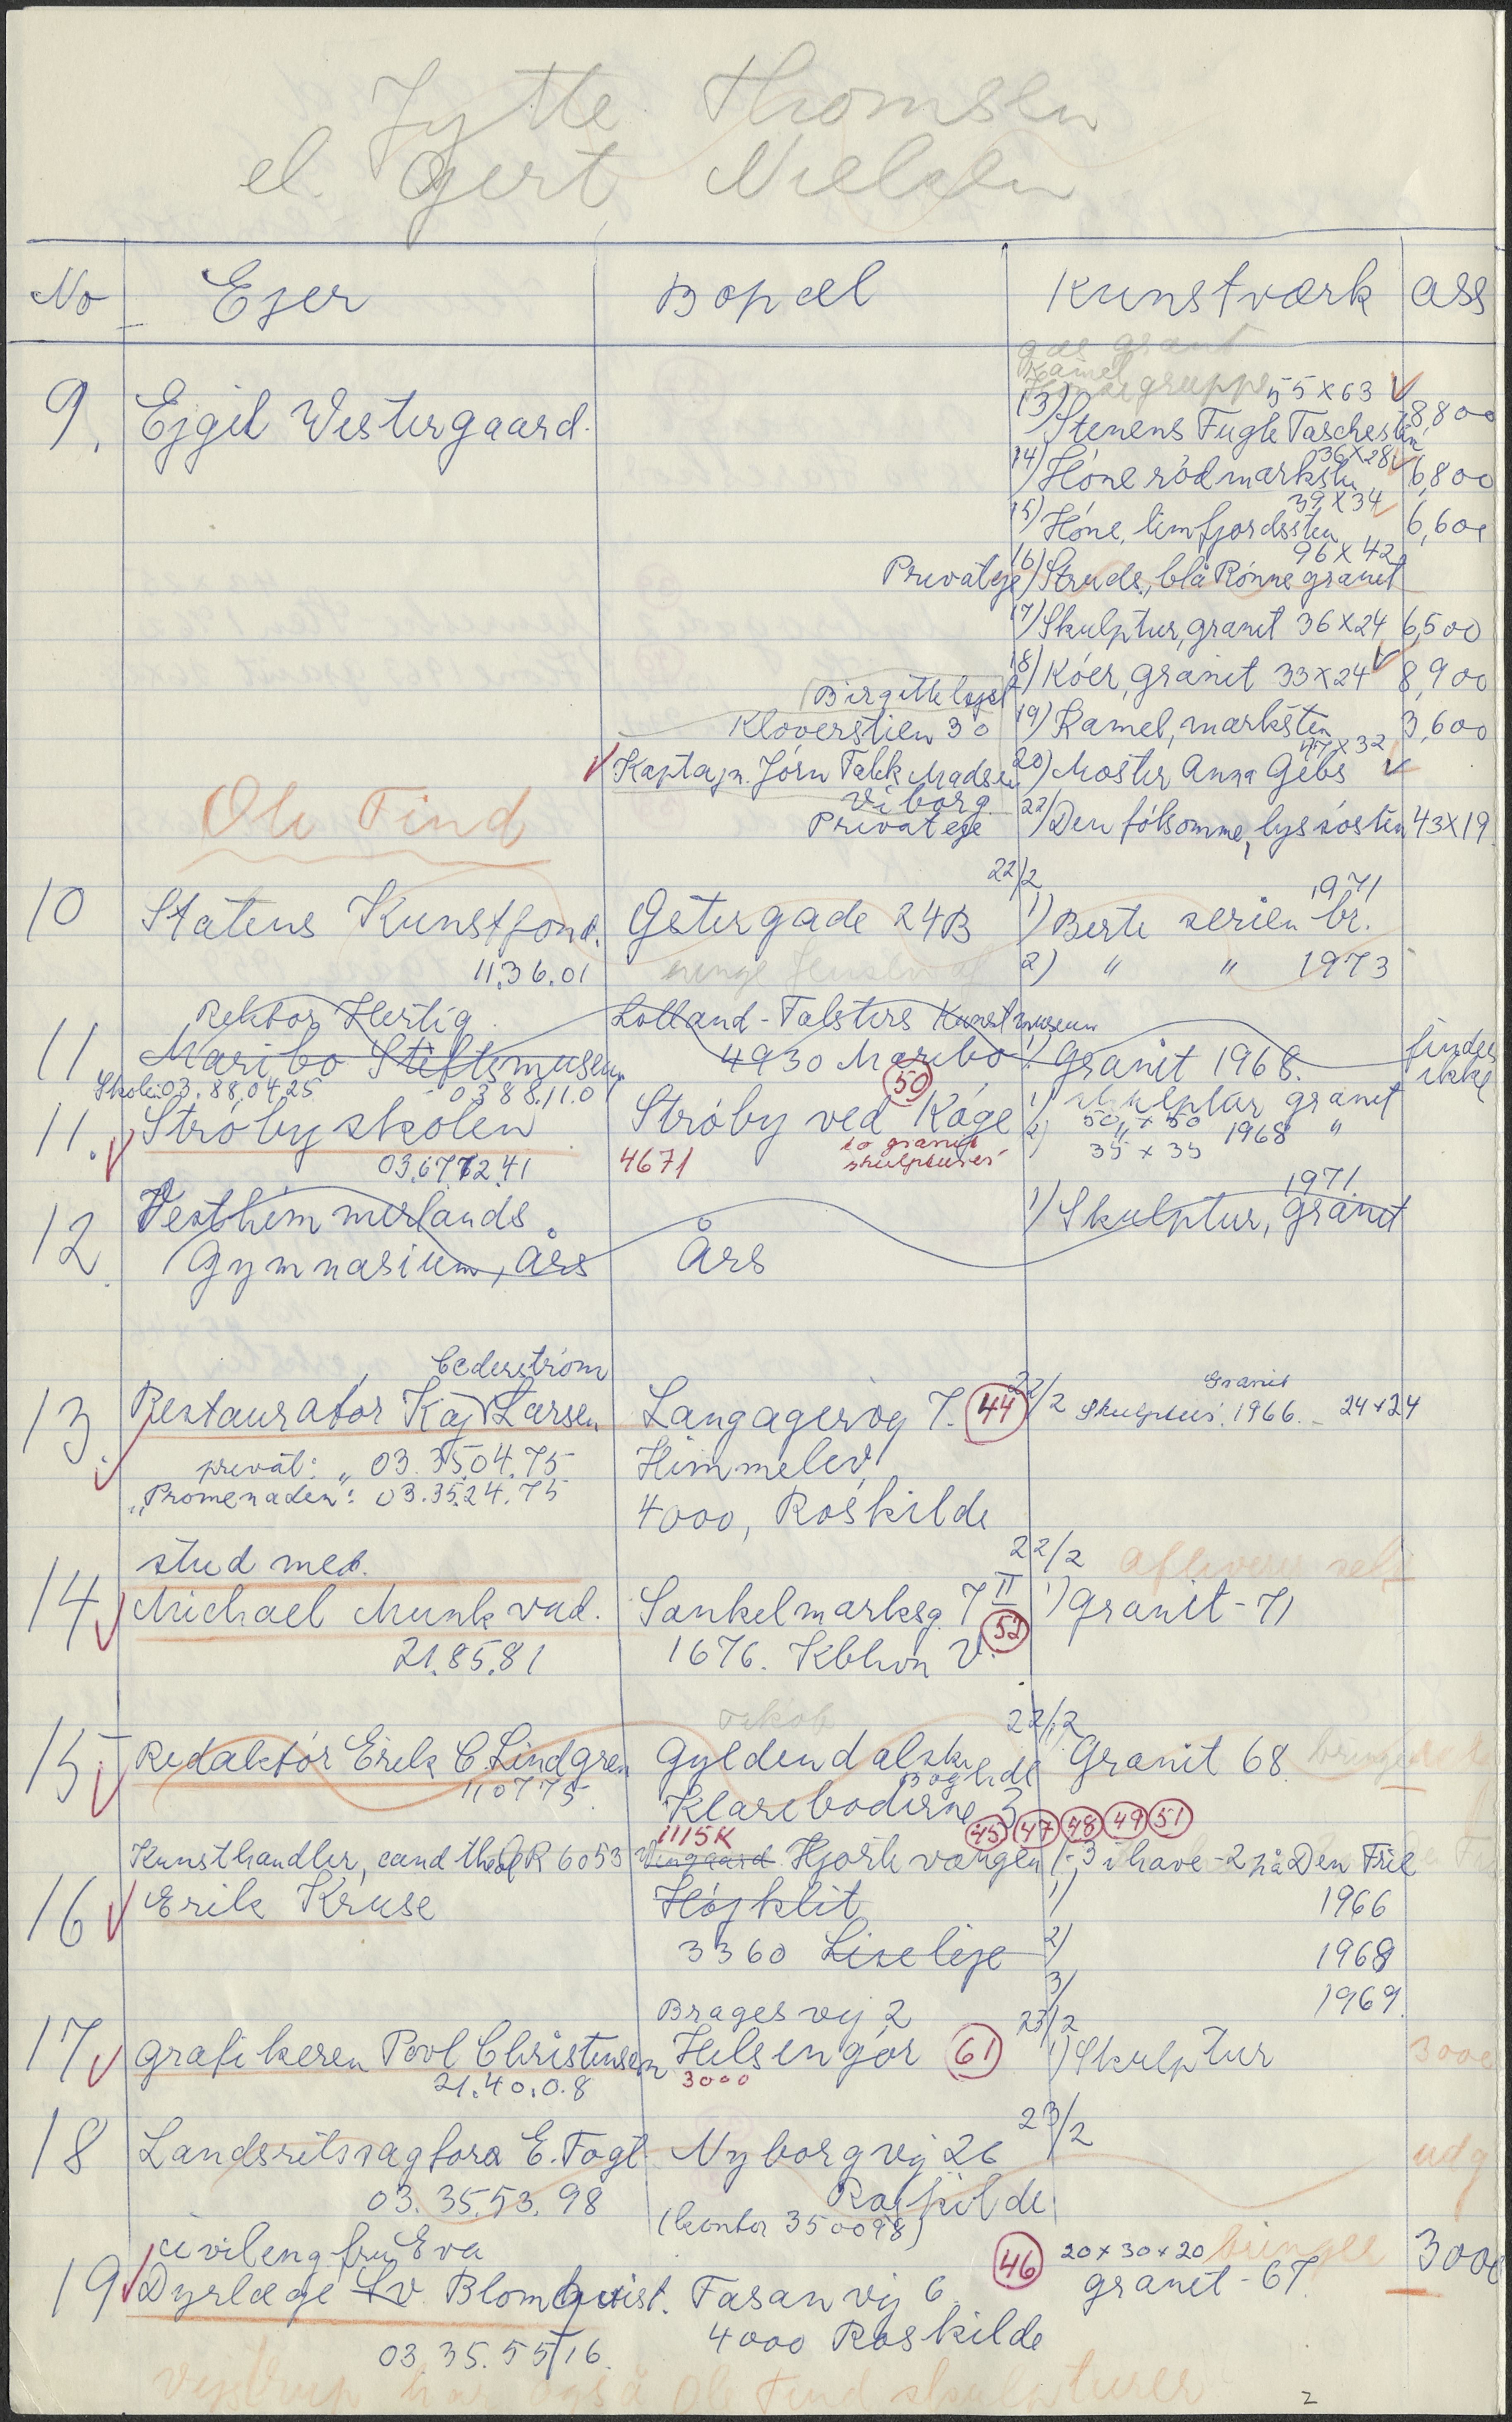 Jytte Thomsen
el. Gert Nielsen
No Ejer Bopæl Kunstværk ass
Kamel
gruppe 55 x 63
9. Ejgil Vestergaard. 13) Stenens Fugle 8,800
36 x 28
14) Höne röd marksten 6,800
39 x 34
15) Höne, limfjordssten 6,600
96 x 42
Privateje 16) Struds, blå Rönne granit
17) Skulptur, granit 36 x 24 6,500
Birgitte 18) Köer, granit 33 x 24 8,900
Kloverstien 30 19) Kamel, marksten 3,600
Kaptajn. Jörn Falck Madsen 20) Moster Anna Gibs
Viborg
Ole Find
Privateje 22) Den fölsomme, lys 43 x 19
22/2 1971
10 Statens Kunstfond. Gstergade 24B 1) Berte serien br.
11.36.01 2) " " 1973
Rektor Hertig Lolland-Falsters Kunstmuseum
11 Maribo Stiftsmuseum 4930 Maribo 1) Granit 1968. findes ikke
Skole: 03.88.04.25 - 0388.11.01
50
11. Ströby skolen Ströby ved Köge 1) skulptur granit
50 x 50
2) " 1968 "
35 x 35
03.67.72.41 4671 to granit skulpturer
1971
12 Vesthimmerlands 1) Skulptur, granit
Gymnasium, Års Års
Cederström
13. Restauratör Kaj Larsen Langagervej 7. 44 22/2 Granit
Skulptur. 1966. - 24 x 24
privat: " 03.35.04.75 Himmelev
"Promenaden": 03.35.24.75
4000, Roskilde
stud med. 22/2 afleverer selv
14 Michael Munkvad. Sankelmarksg. 7 II 1) Granit - 71
21.85.81 1676. Kbhvn V. 52
22/2
15 Redaktör Erik C. Lindgren Gyldendalske Boghdl Granit 68
110775. Klareboderne 3
1115 K 45 47 48 49 51
Kunsthandler, cand theol R 6053 Vingaard Hjortevangen 1-3 i have - 2 på Den Frie
16 Erik Kruse Höjklit 1) 1966
3360 Liseleje 2) 1968
3) 1969.
Bragesvej 2 23/2
17 Grafikeren Povl Christensen Helsingör 61 1) Skulptur 3000
21.40.0.8 3000
23/2
18 Landsretssagförer E. Fogt Nyborgvej 26 udg
03.35.53.98 Roskilde
(kontor 350098)
civileng. fru Eva 46 20 x 30 x 20 bringer 3000
19 Dyrlæge Sv. Blomquist. Fasanvej 6 granit - 67
03 35.55 16. 4000 Roskilde
har også Ole Find skulpturer
2